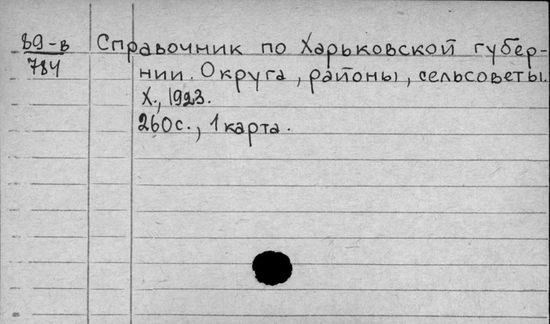 89-в Справочник по Харьковской губер-
784 нии. Округа, районы, сельсоветы.
Х., 1923.
260с., 1 карта.